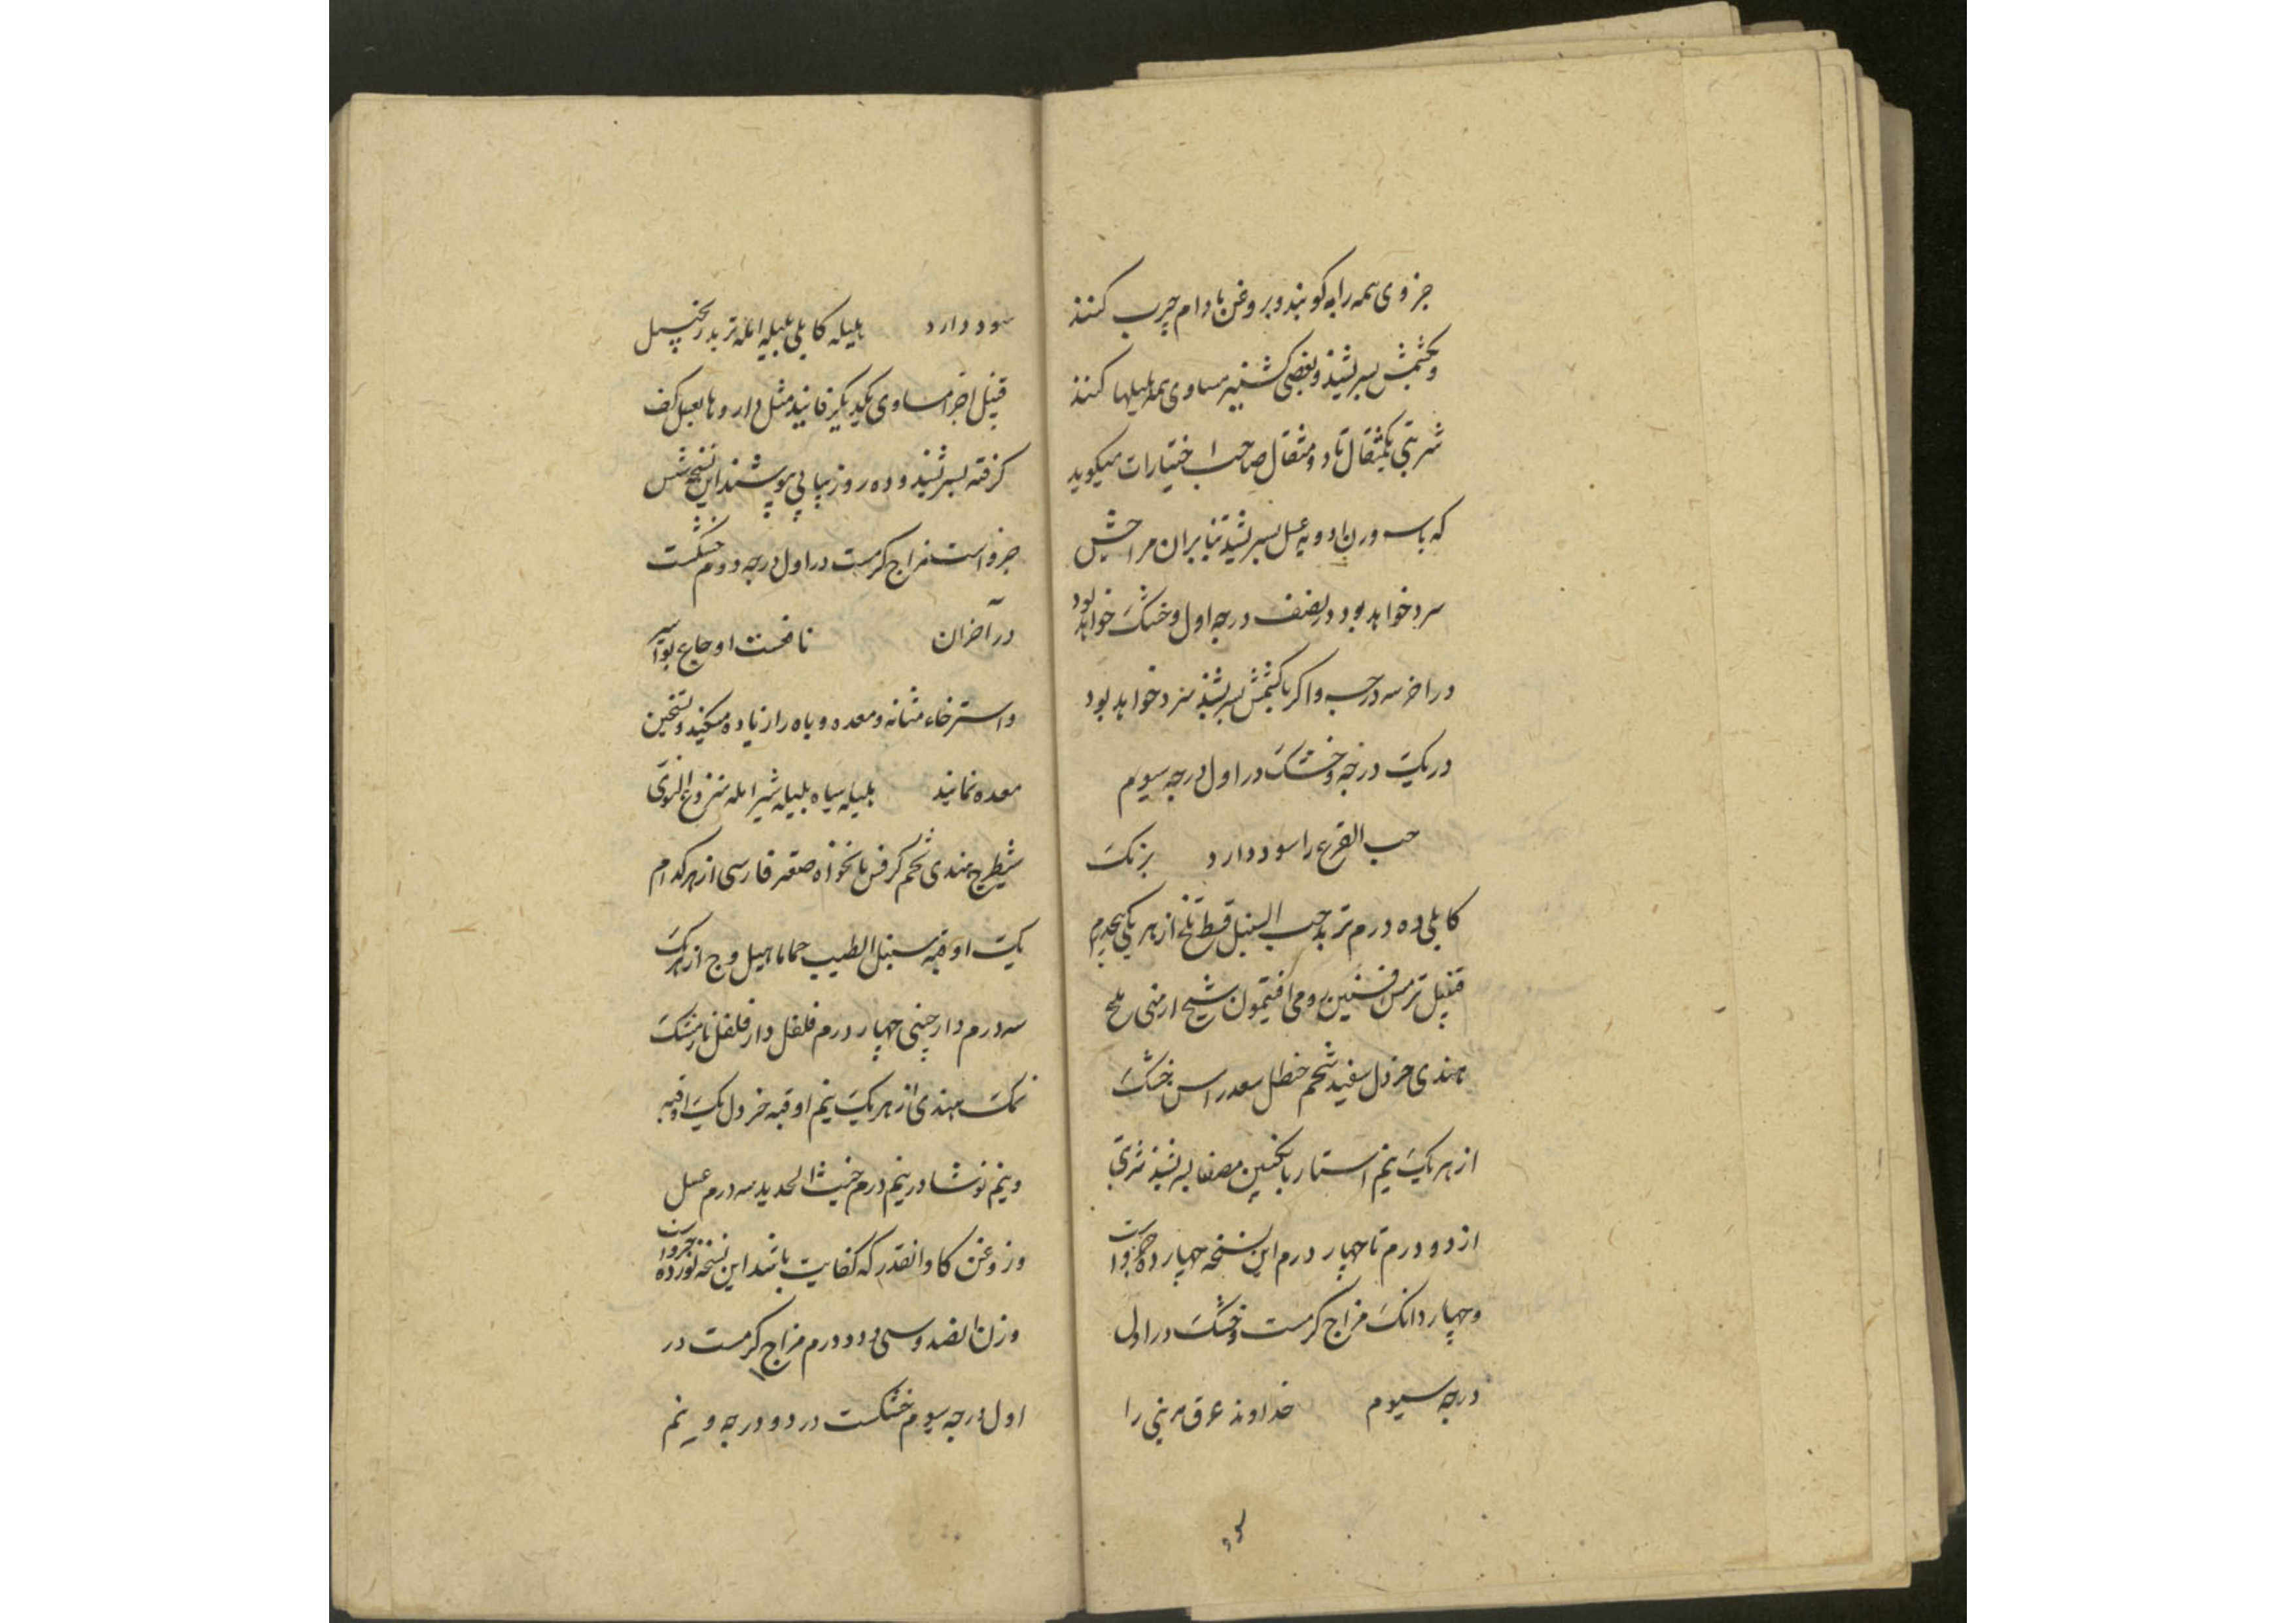 جزوی همه را بکوبند و بروغن بادام چرب کنند
و بکشمش بسرشند و بعضی کشنیز مساوی همه هلیلها کنند
شربتی یکمثقال تا دو مثقال صاحب اختیارات میکوید
که باسه وزن ادویه عسل بسرشند بنابران مزاجش
سرد خواهد بود در نصف درجه اول و خشک خواهد بود
در اخر سه درجه و اکر با کشمش بسرشند سرد خواهد بود
در یک درجه و خشک در اول درجه سیوم
حب القرع را سود دارد برنک
کابلی ده درم تربد حب النیل قسط تلخ از هر یکی پنجدرم
قنبیل ترمس افسنتین رومی افتیمون شیح ارمنی ملح
هندی خردل سفید شحم حنظل سعد راسن خشک
از هر یک نیم استار بانکبین مصفا بسرشند شربتی
از دو درم تا چهار درم این نسخه چهارده جزو است
و چهار دانک مزاج کرمست و خشک در اول
درجه سیوم خداوند عرق مدینی را
سود دارد هلیله کابلی بلیله امله تربد زنجبیل
قنبیل اجزا مساوی یکدیکر فانید مثل داروها بعسل کف
کرفته بسرشند و ده روز پیاپی بنوشند این نسخه شش
جزو است مزاج کرمست در اول درجه دوم خشکست
در آخر ان نافعست اوجاع بواسیر
و استرخاء مثانه و معده و باه را زیاده میکند و تسخین
معده نماید هلیله سیاه بلیله شیر امله منزوع النوی
شیطرج هندی تخم کرفس نانخواه صعتر فارسی از هر کدام
یک اوقیه سنبل الطیب حماما هیل وج از هر یک
سه درم دارچینی چهار درم فلفل دارفلفل نارمشک
نمک هندی از هر یک نیم اوقیه خردل یک اوقیه
و نیم نوشادر نیم درم خبث الحدید سه درم عسل
و روغن کاو انقدر که کفایت باشد این نسخه نوزده جزو است
وزن صد و سی و دو درم مزاج کرمست در
اول درجه سیوم خشکست در دو درجه و نیم